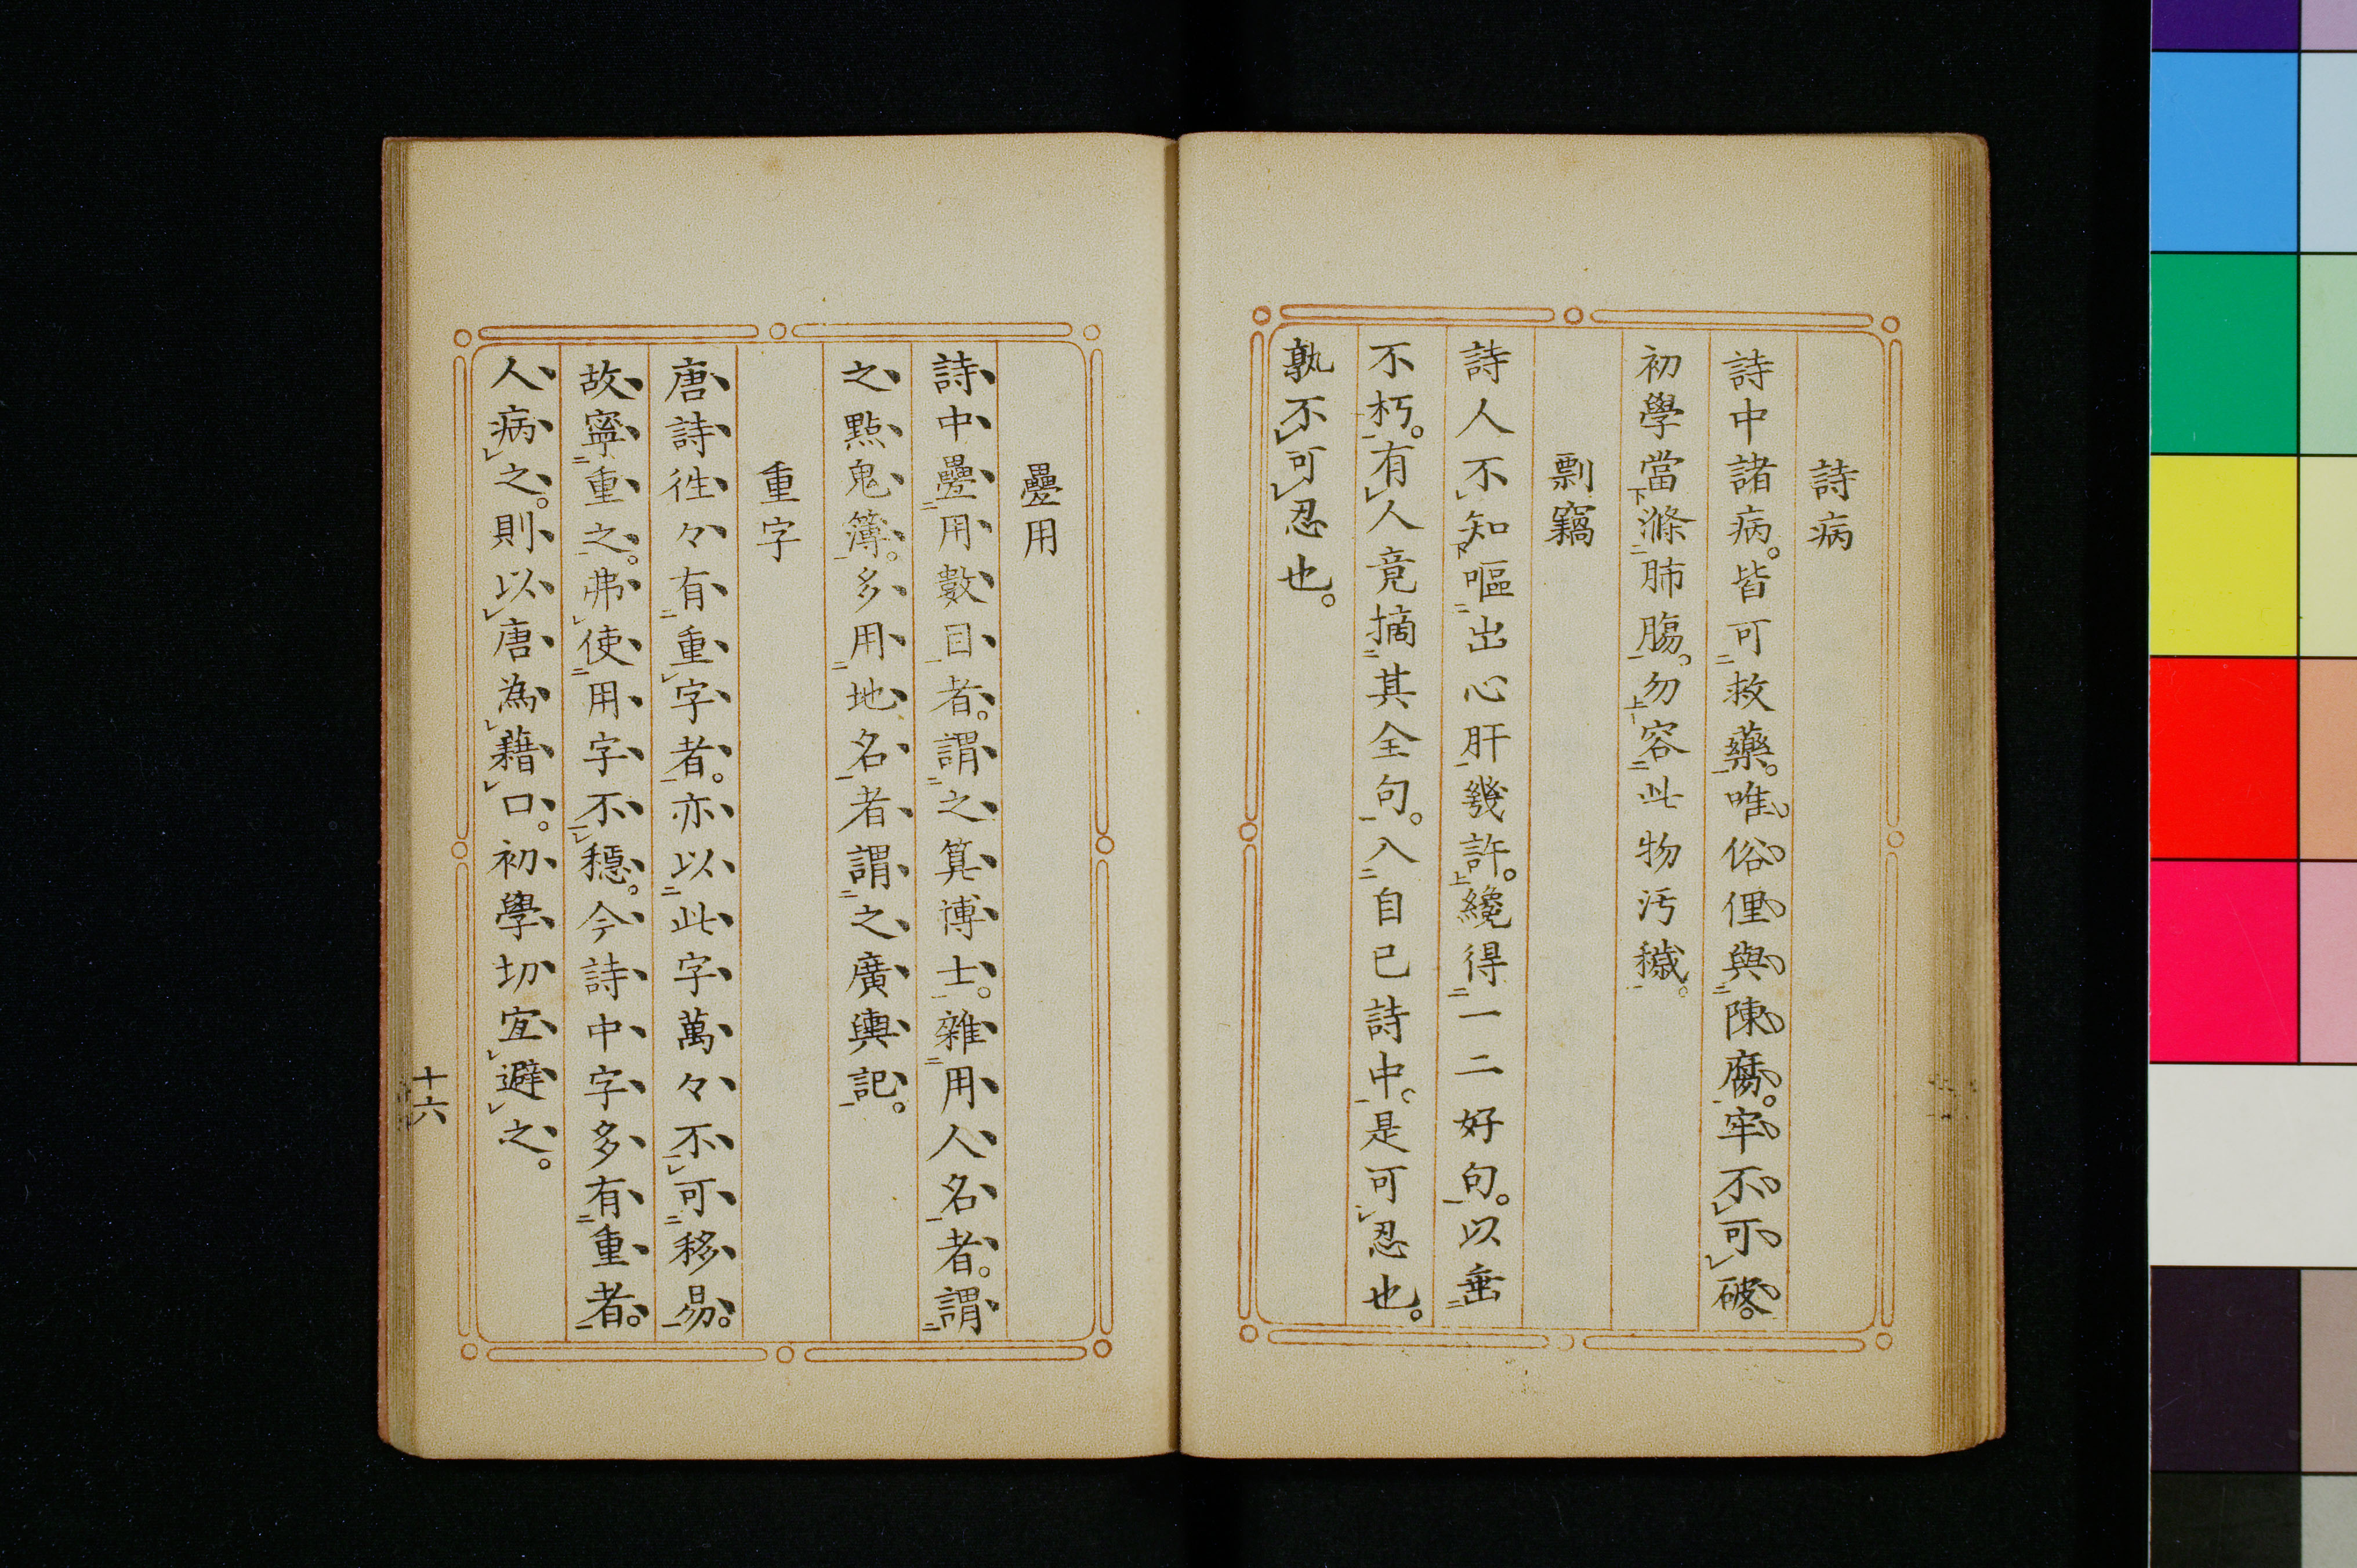 詩病
詩中諸病。皆可救藥。唯俗俚與陳腐。牢不可破。
初學當滌肺膓。勿容此物汚穢。
剽竊
詩人不知嘔出心肝幾許。纔得一二好句。以垂
不朽。有人竟摘其全句。入自己詩中。是可忍也。
孰不可忍也。
疊用
詩中疊用數目者。謂之算博士。雜用人名者。謂
之點鬼簿。多用地名者謂之廣輿記。
重字
唐詩徃々有重字者。亦以此字萬々不可移易。
故寧重之。弗使用字不穩。今詩中字多有重者。
人病之。則以唐為藉口。初學切宜避之。
十六